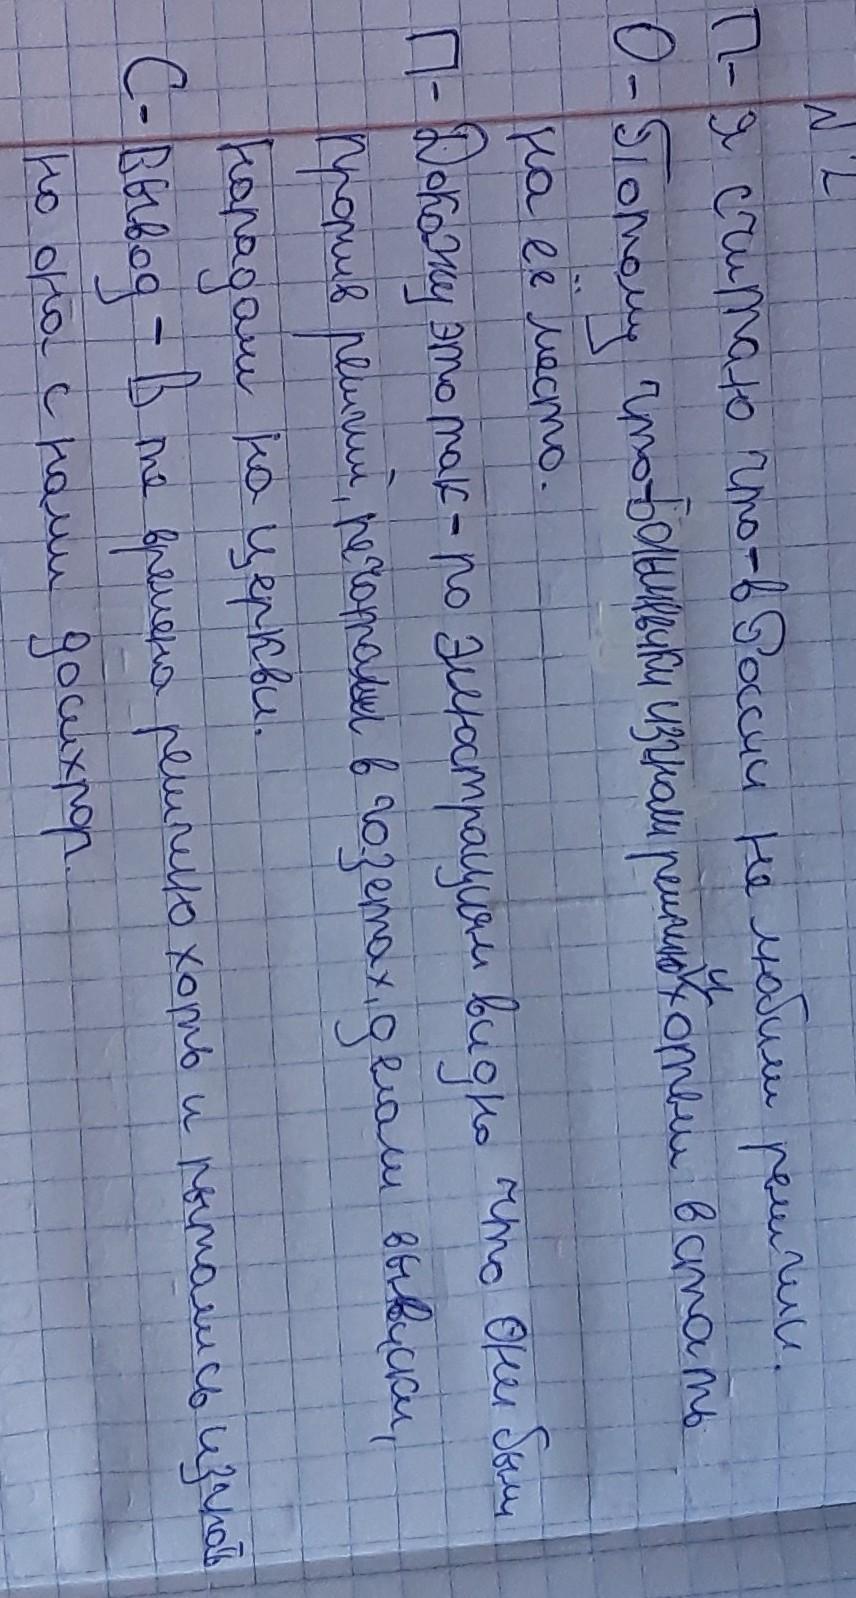 №2
П- Я считаю что-в России не любили религии.
О- Потому что-большевики изгнали религию и хотели встать
на её место.
П- Докажу это так- по элюстрациям видно что они были
против религии, печатали в гозетах, делали вывиски,
нападали на церкви.
С- Вывод - В те времена религию хоть и пытались изгнать
но она с нами до сих пор.